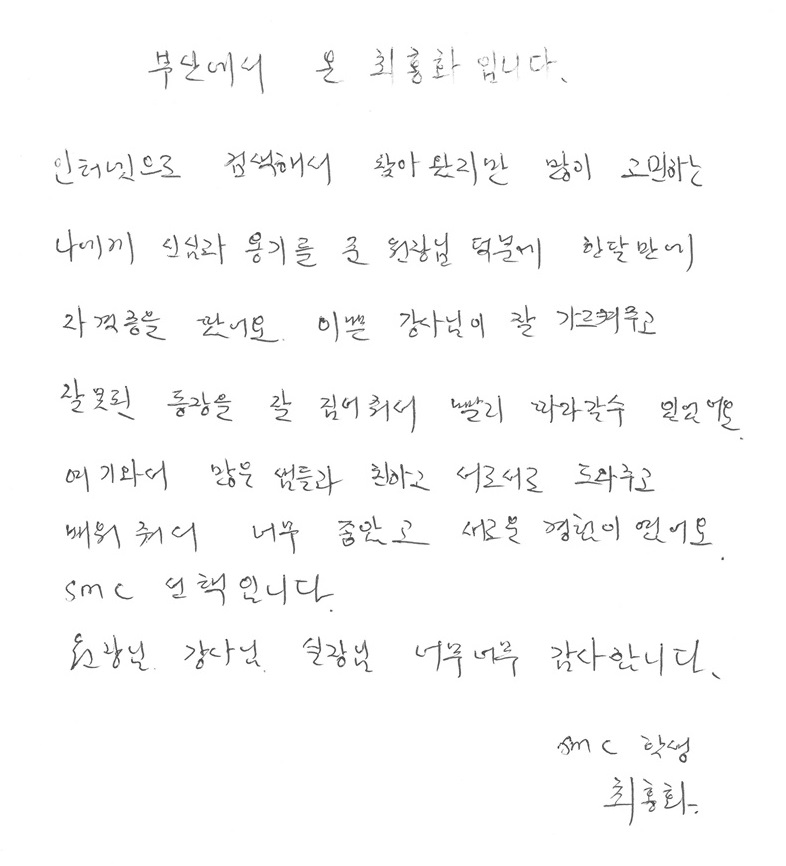 부산에서 온 최홍화입니다.
인터넷으로 검색해서 찾아 왔지만 많이 고민하는
나에게 신심과 용기를 준 원장님 덕분에 한달만에
자격증을 땄어요. 이쁜 강사님이 잘 가르켜주고
잘못된 동장을 잘 짚어줘서 빨리 따라갈수 있었어요.
여기와서 많은 샘들과 친하고 서로서로 도와주고
배워줘서 너무 좋았고 새로운 경험이 였어요.
smc 선택입니다.
원장님. 강사님. 실장님 너무너무 감사합니다.
smc 학생
최홍화.